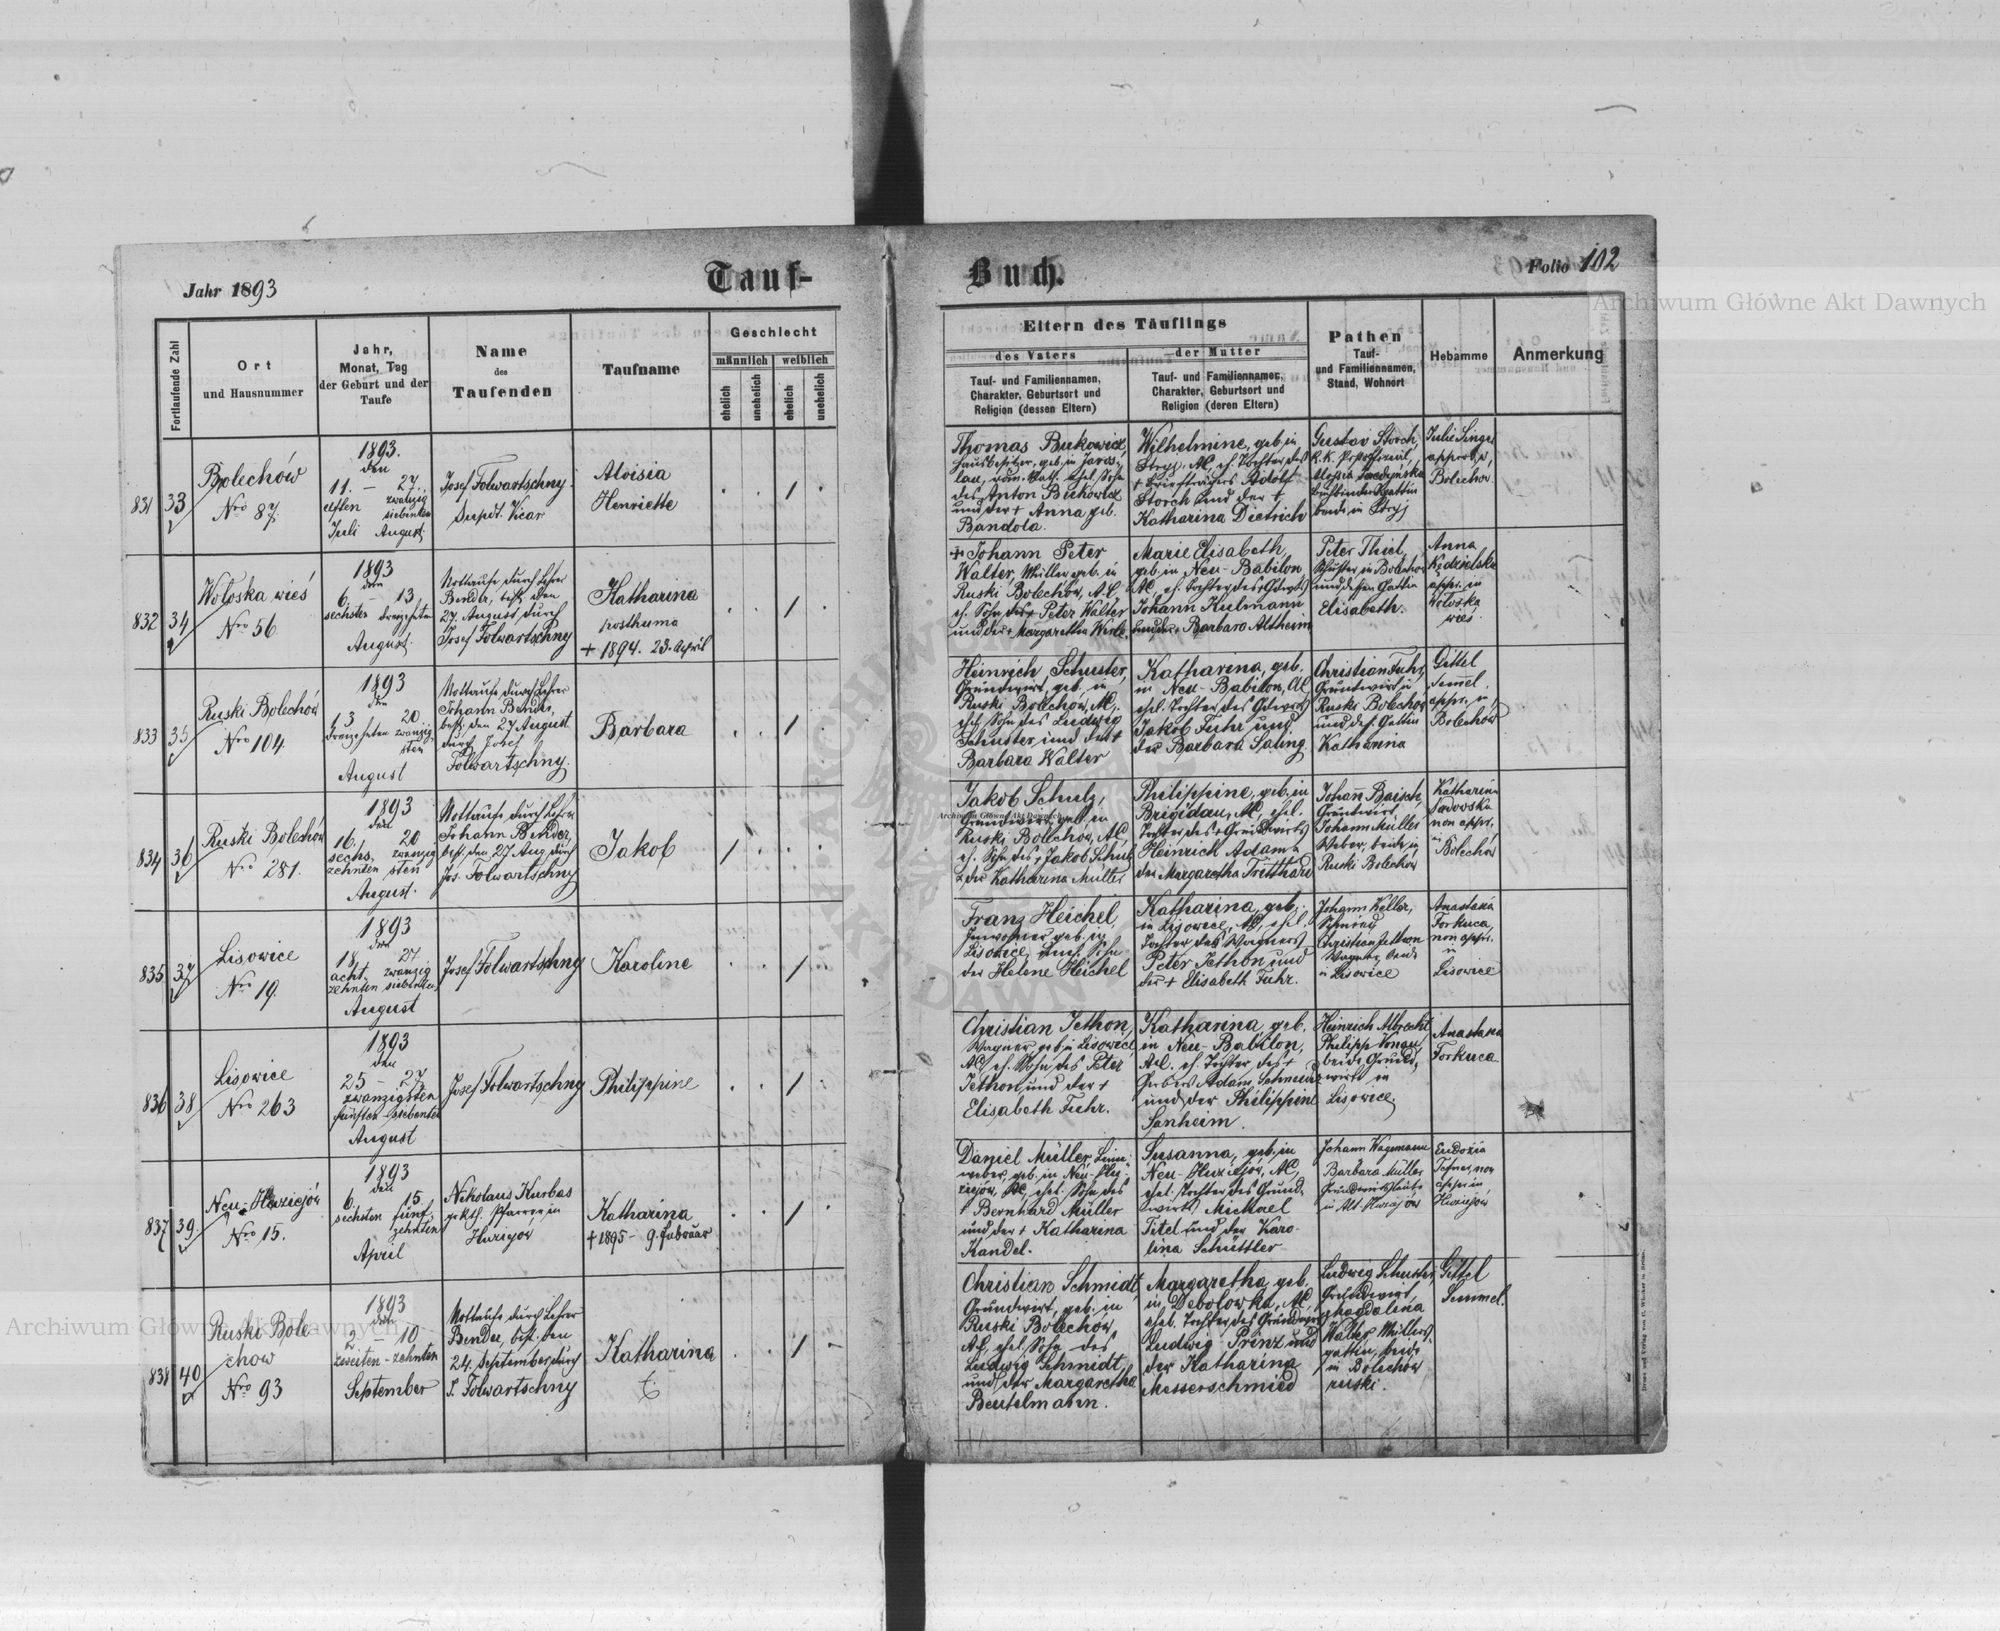 Archiwum Główne Akt Dawnych
Jahr 1893
Tauf-
Buch.
Folio 102
Fortlaufende Zahl
Ort
und Hausnummer
Jahr,
Monat, Tag
der Geburt und der
Taufe
Name
des
Taufenden
Taufname
Geschlecht
männlich
weiblich
ehelich
unehelich
ehelich
unehelich
Eltern des Täuflings
des Vaters
Tauf- und Familiennamen,
Charakter, Geburtsort und
Religion (dessen Eltern)
der Mutter
Tauf- und Familiennamen,
Charakter, Geburtsort und
Religion (deren Eltern)
Pathen
Tauf-
und Familiennamen,
Stand, Wohnort
Hebamme
Anmerkung
831
33
Bolechów
Nro 87.
1893.
den
11. — 27.
elften zwanzig
siebenten
Juli August
Josef Folwartschny
Supdt. Vicar
Aloisia
Henriette
Thomas Bukowicz,
Hausbesitzer, geb. in Jaros-
lau, röm. kath. ehel. Sohn
des Anton Bukowicz
und der + Anna geb.
Bandola.
Wilhelmine, geb. in
Stryj, AC, eh. Tochter des
+ Briefträgers Adolf
Storch und der +
Katharina Dietrich
Gustav Storch,
k. k.
Aloisia
beide in Stryj
Julie Singer
approb. in
Bolechow
832
34
Wołoska wieś
Nro 56
1893
den
6. — 13.
sechsten dreizehnten
August.
Nottaufe durch Lehrer
Bender, best. den
27. August durch
Josef Folwartschny
Katharina
posthuma
+ 1894. 23. April
+ Johann Peter
Walter, Müller geb. in
Ruski Bolechów, A.C.,
eh. Sohn des Peter Walter
und der + Margaretha
Marie Elisabeth,
geb. in Neu-Babilon
AC, eh. Tochter des Gdwrts
Johann Kulmann
und der + Barbara Altheim
Peter Thiel,
Schuster in Bolechow
und dessen Gattin
Elisabeth.
Anna
Kędzielska
appr. in
Wołoska
wieś
833
35
Ruski Bolechów
Nro 104
1893
den
13 20
dreizehnten zwanzig
sten
August
Nottaufe durch Lehrer
Johann Bender,
best. den 27 August
durch Josef
Folwartschny.
Barbara
Heinrich Schuster,
Grundwirt, geb. in
Ruski Bolechów, AC,
ehel. Sohn des Ludwig
Schuster und der +
Barbara Walter
Katharina, geb.
in Neu-Babilon, AC
ehel. Tochter des Gdwrts
Jakob Fuhr und
der Barbara Saling.
Christian Fuhr,
Grundwirt in
Ruski Bolechów
und des. Gattin
Katharina
Gittel
Semmel.
appr. in
Bolechów
834
36
Ruski Bolechów
Nro 281.
1893
den
16. 20
sechs- zwanzig
zehnten sten
August.
Nottaufe durch Lehrer
Johann Bender,
best. den 27 Aug. durch
Jos. Folwartschny
Jakob
Jakob Schulz,
Grundwirt, geb. in
Archiwum Główne Akt Dawnych
Ruski Bolechów, AC,
eh. Sohn des + Jakob Schulz
u. der Katharina Müller
Philippine, geb. in
Brigidau, AC, ehel.
Tochter des + Grundwirts
Heinrich Adam u.
der Margaretha Tritthard
Johann Baisch,
Grundwirt,
Johann Müller
Weber, beide in
Ruski Bolechow
Katharina
Sadowska
non appr.
in
Bolechów
835
37
Lisowice
Nro 19.
1893
den
18. 27
acht- zwanzig
zehnten siebenten
August
Josef Folwartschny
Karoline
Franz Heichel,
Inwohner geb. in
Lisowice, uneh. Sohn
der Helene Heichel
Katharina, geb.
in Lisowice, AC, ehel.
Tochter des Wagners
Peter Jethon und
der + Elisabeth Fuhr.
Johann Keller,
Schmied,
Christian Jethon
Wagner, beide
in Lisowice
Anastasia
Forkuca,
non appr.
in
Lisowice
836
38
Lisowice
Nro 263
1893
den
25 — 27.
zwanzigsten
fünften siebenten
August
Josef Folwartschny
Philippine
Christian Jethon,
Wagner geb. in Lisowice,
AC, eh. Sohn des Peter
Jethon und der +
Elisabeth Fuhr.
Katharina, geb.
in Neu-Babilon,
AC. eh. Tochter des +
Adam Schneider
und der Philippine
Sanheim.
Heinrich Albrecht
Philipp
beide Grund-
wirte in
Lisowice
Anastasia
Forkuca
837
39.
Neu-Huziejów
Nro 15.
1893
den
6. 15
sechsten fünf-
zehnten
April
Nikolaus Kurbas
gr. kth. Pfarrer in
Huziejów
Katharina
+ 1895 - 9. Februar
Daniel Müller Lein-
weber, geb. in Neu-Hu-
ziejów, AC, ehel. Sohn des
+ Bernhard Müller
und der + Katharina
Kandel.
Susanna, geb. in
Neu-Huziejów, AC,
ehel. Tochter des Grund-
wirts Michael
Titel und der Karo-
lina Schüttler
Johann Wagemann
Barbara Müller
Grundwirtsleute
in Alt-Huziejów
Eudoxia
non
appr. in
Huziejów
838
40
Ruski Bole-
chow
Nro 93
1893
den
2 — 10
zweiten - zehnten
September
Nottaufe durch Lehrer
Bender, best. den
24. September durch
J. Folwartschny
Katharina
Christian Schmidt,
Grundwirt, geb. in
Ruski Bolechów,
AC, ehel. Sohn des
Ludwig Schmidt,
und der Margaretha
Beutelmann.
Margaretha, geb.
in Debolowka, AC,
ehel. Tochter des Grundwirts
Ludwig Prinz und
der Katharina
Messerschmied
Ludwig Schuster,
Grundwirt,
Magdalena
Walter Müllers-
gattin, beide
in Bolechów
ruski.
Gittel
Semmel.
Archiwum Główne Akt Dawnych